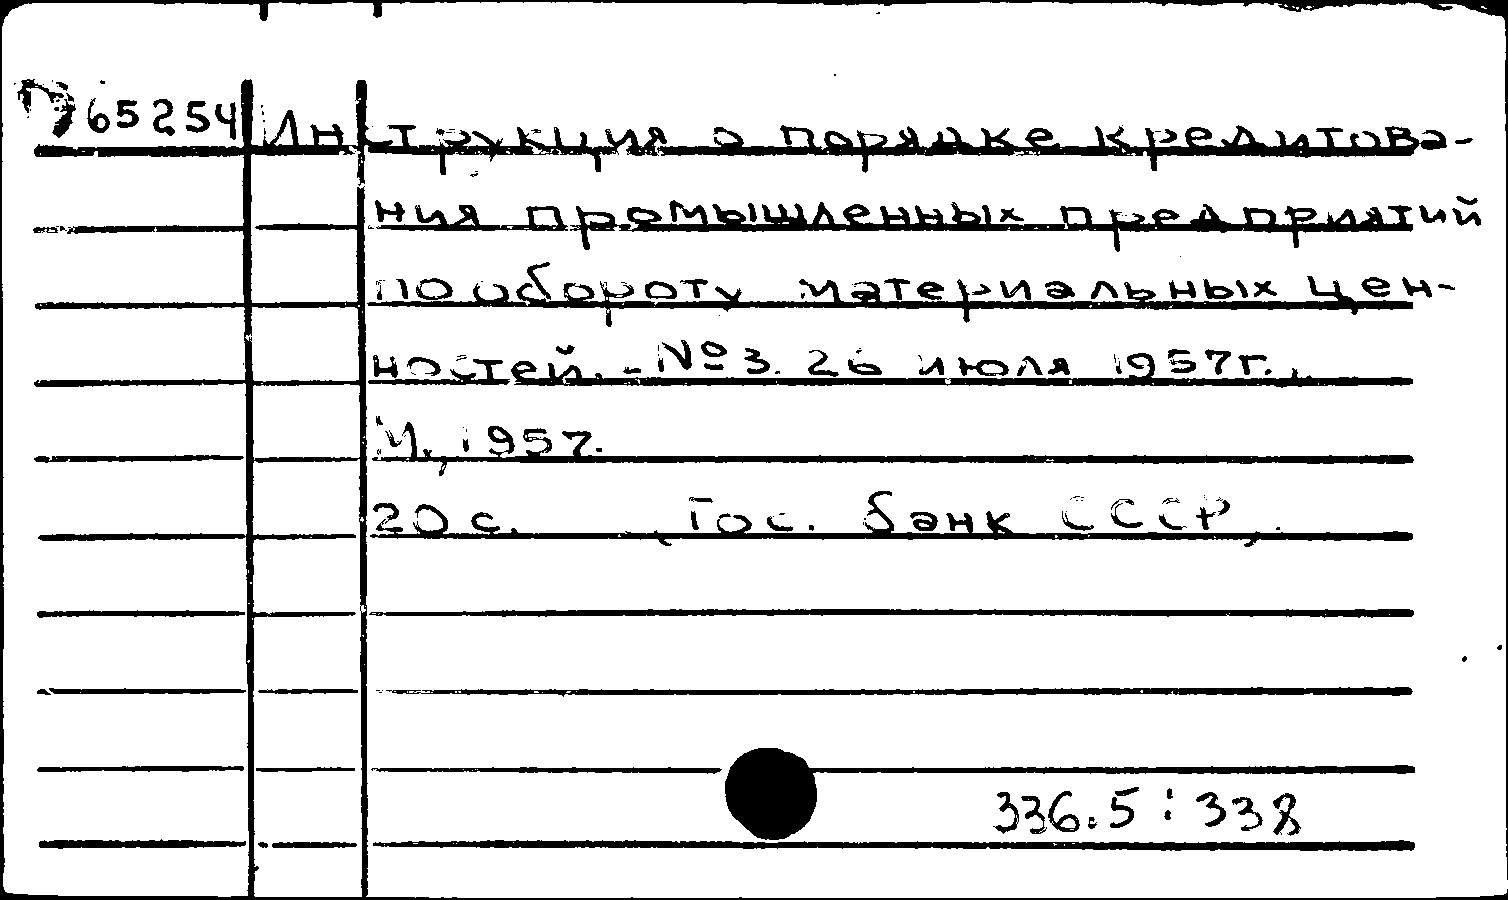 П65254 Инструкция о порядке кредитова-
ния промышленных предприятий
по обороту материальных цен-
ностей. - № 3. 26 июля 1957г.,
М., 1957.
20 с. (Гос. банк СССР)
336.5 : 338